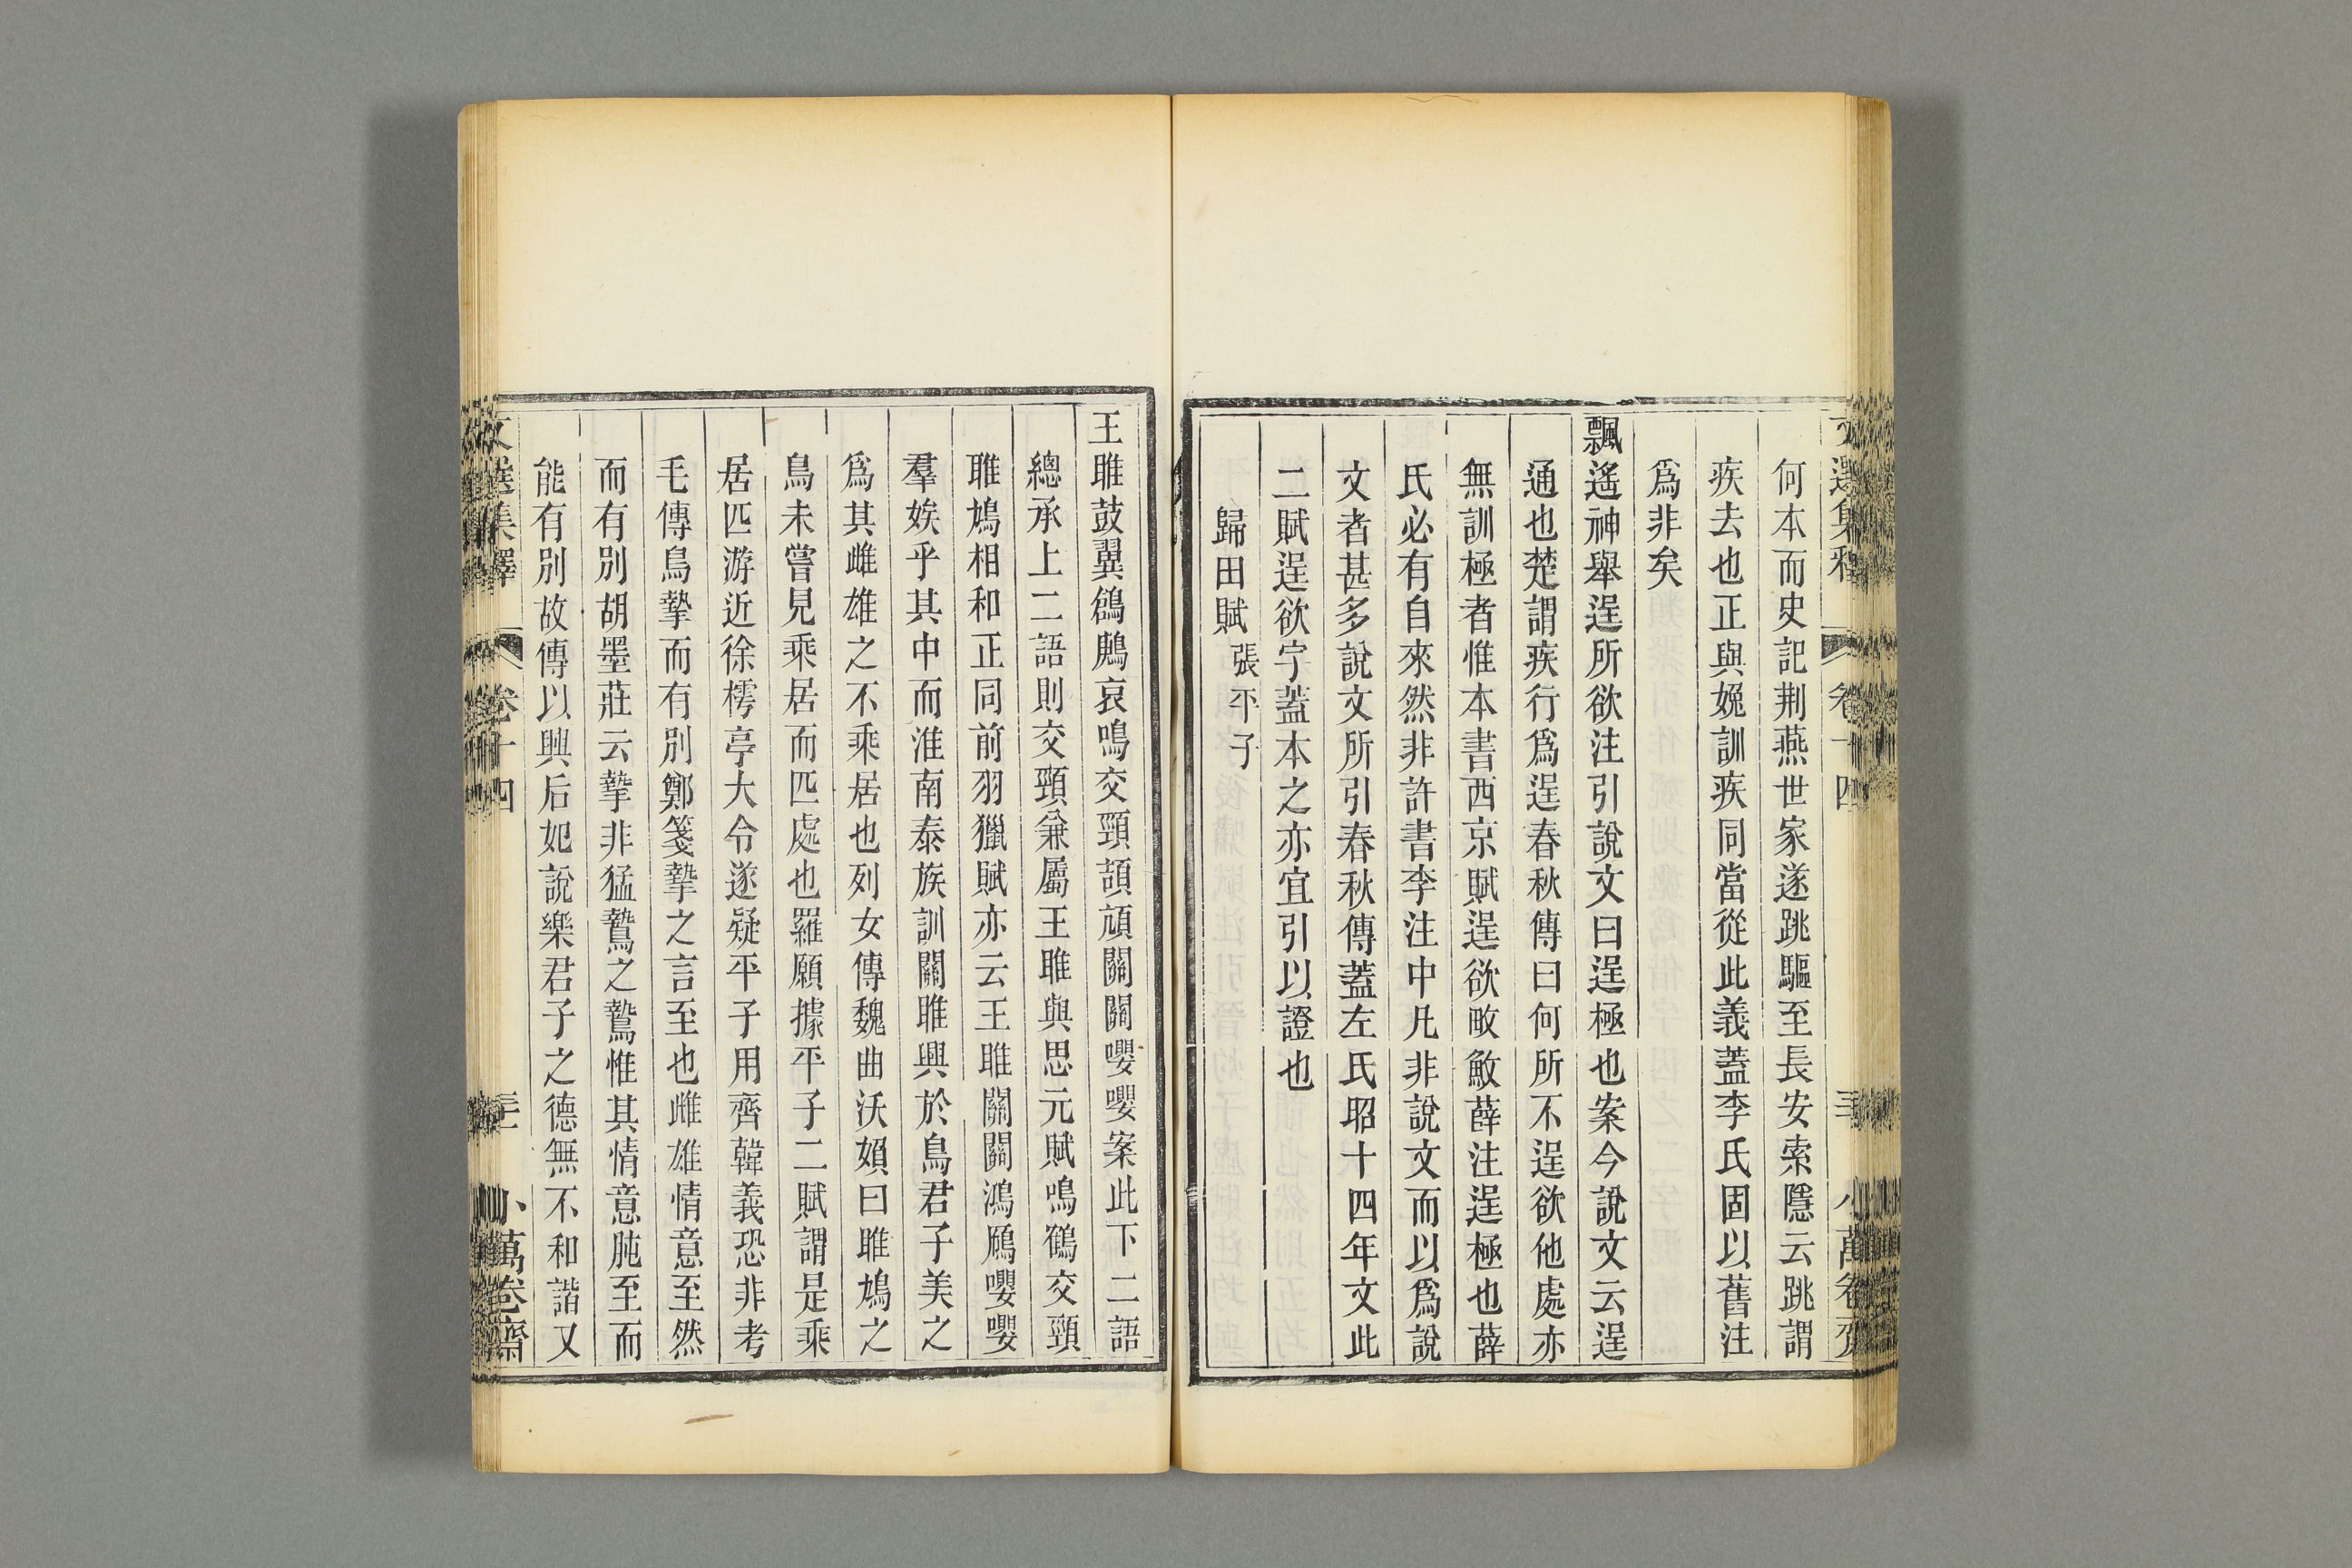 何本而史記荆燕世家遂跳驅至長安索隱云跳謂
疾去也正與娩訓疾同當從此義蓋李氏固以舊注
爲非矣
飄遙神舉逞所欲注引說文曰逞極也案今說文云逞
通也楚謂疾行爲逞春秋傳曰何所不逞欲他處亦
無訓極者惟本書西京賦逞欲畋𩼪薛注逞極也薛
氏必有自來然非許書李注中凡非說文而以爲說
文者甚多說文所引春秋傳蓋左氏昭十四年文此
二賦逞欲字蓋本之亦宜引以證也
歸田賦張平子
王雎鼓翼鶬鶊哀鳴交頸頡頏關關嚶嚶案此下二語
總承上二語則交頸兼屬王雎與思元賦鳴鶴交頸
雎鳩相和正同前羽獵賦亦云王雎關關鴻鴈嚶嚶
羣娭乎其中而淮南泰族訓關雎興於鳥君子美之
爲其雌雄之不乘居也列女傳魏曲沃婦曰雎鳩之
鳥未嘗見乘居而匹處也羅願據平子二賦謂是乘
居匹游近徐樗亭大令遂疑平子用齊韓義恐非考
毛傳鳥摯而有別鄭箋摯之言至也雌雄情意至然
而有別胡墨莊云摯非猛鷙之鷙惟其情意肫至而
能有別故傳以興后妃說樂君子之德無不和諧又
文選集釋 卷十四 小萬卷齋